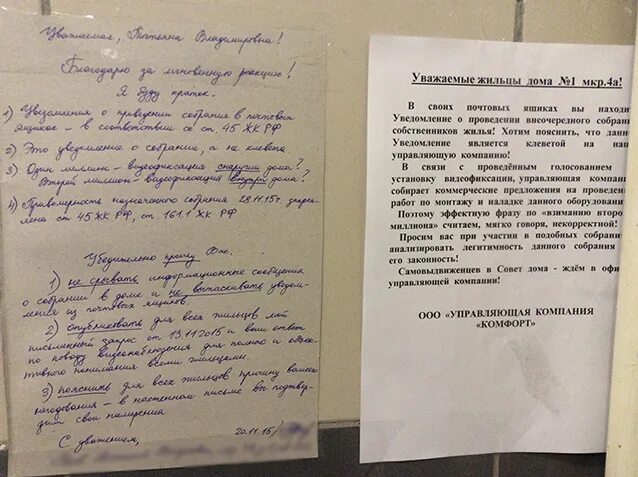 Уважаемая, Татьяна Владимировна!
Благодарю за мгновенную реакцию!
Я буду краток.
1) Уведомления о проведении собрания в почтовых
ящиках - в соответствии со ст 45 ЖК РФ
2) Это уведомление о собрании, а не клевета
3) Один миллион - видеофиксация снаружи дома?
Второй миллион - видеофиксация внутри дома?
4) Правомерность назначенного собрания 28.11.15г. закреп-
лена ст 45 ЖК РФ, ст. 161.1 ЖК РФ
Убедительно прошу Вас:
1) не срывать информационные сообщения
о собрании в доме и не вытаскивать уведом-
ления из почтовых ящиков
2) опубликовать для всех жильцов мой
письменный запрос от 13.11.2015 и ваш ответ
по поводу видеонаблюдения для полного и объек-
тивного понимания всеми жильцами.
3) пояснить для всех жильцов причину вашего
негодования - в настенном письме вы подтвер-
дит свои намерения
С уважением,
20.11.15/
Уважаемые жильцы дома №1 мкр.4а!
В своих почтовых ящиках вы находи
Уведомление о проведении внеочередного собран
собственников жилья! Хотим пояснить, что данн
Уведомление является клеветой на наш
управляющую компанию!
В связи с проведённым голосованием
установку видеофиксации, управляющая компани
собирает коммерческие предложения на проведени
работ по монтажу и наладке данного оборудовани
Поэтому эффектную фразу по «взиманию второ
миллиона» считаем, мягко говоря, некорректной!
Просим вас при участии в подобных собрани
анализировать легитимность данного собрания
его законность!
Самовыдвиженцев в Совет дома - ждём в офи
управляющей компании!
ООО «УПРАВЛЯЮЩАЯ КОМПАНИЯ
«КОМФОРТ»